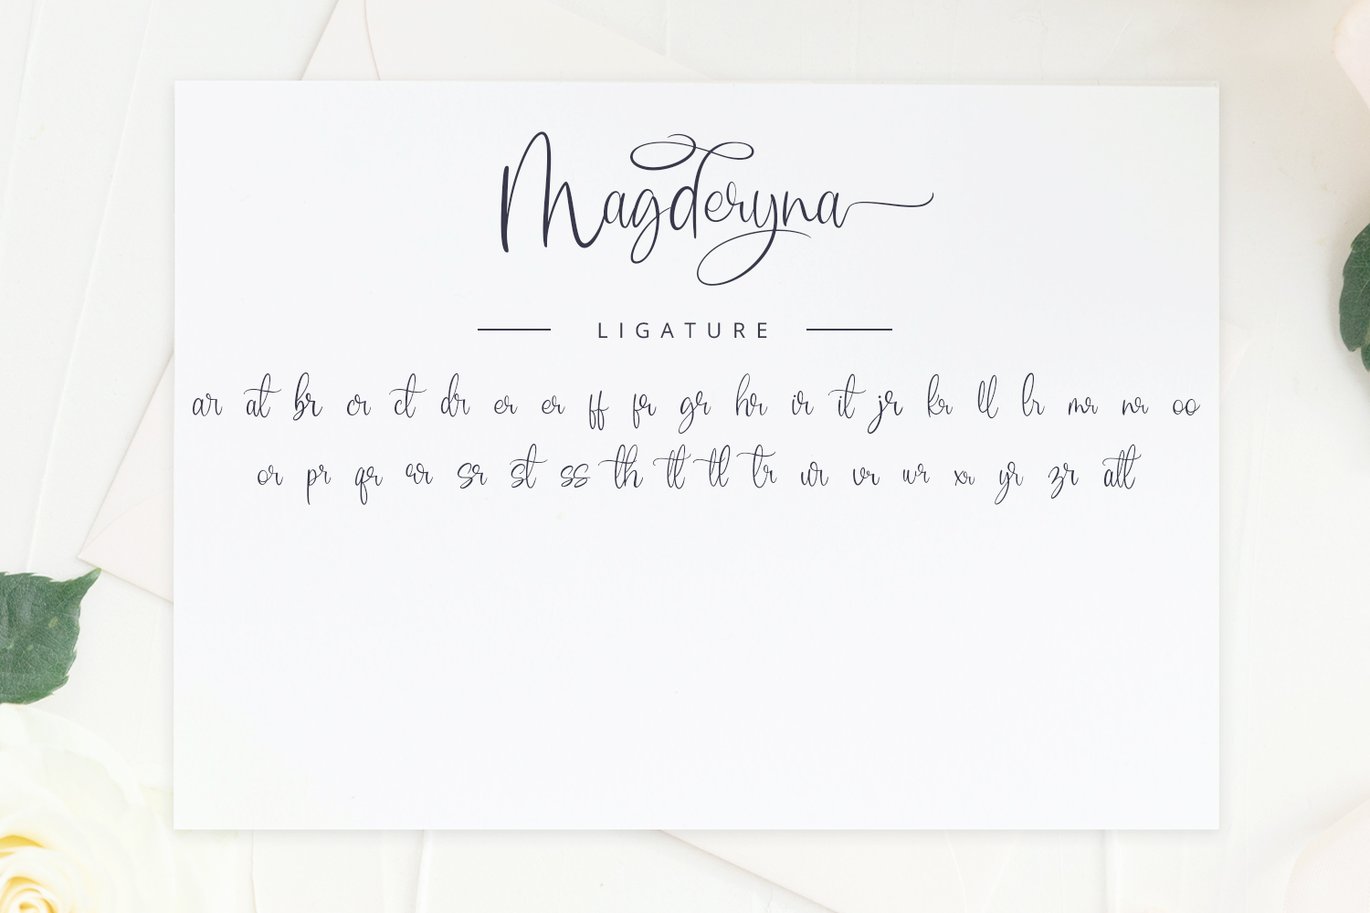 Magderyna
LIGATURE
ar at br cr ct dr er er ff fr gr hr ir it jr kr ll lr mr nr oo
or pr qr rr sr st ss th tt tl tr ur vr wr xr yr zr att